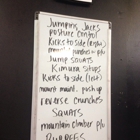 Jumping Jacks
posture control
Kicks to side (right)
Jump squats
Kimura situps
Kicks to side (left)
mount push up
reverse crunches
SQUATS
mountain climber p/u
BURPEES